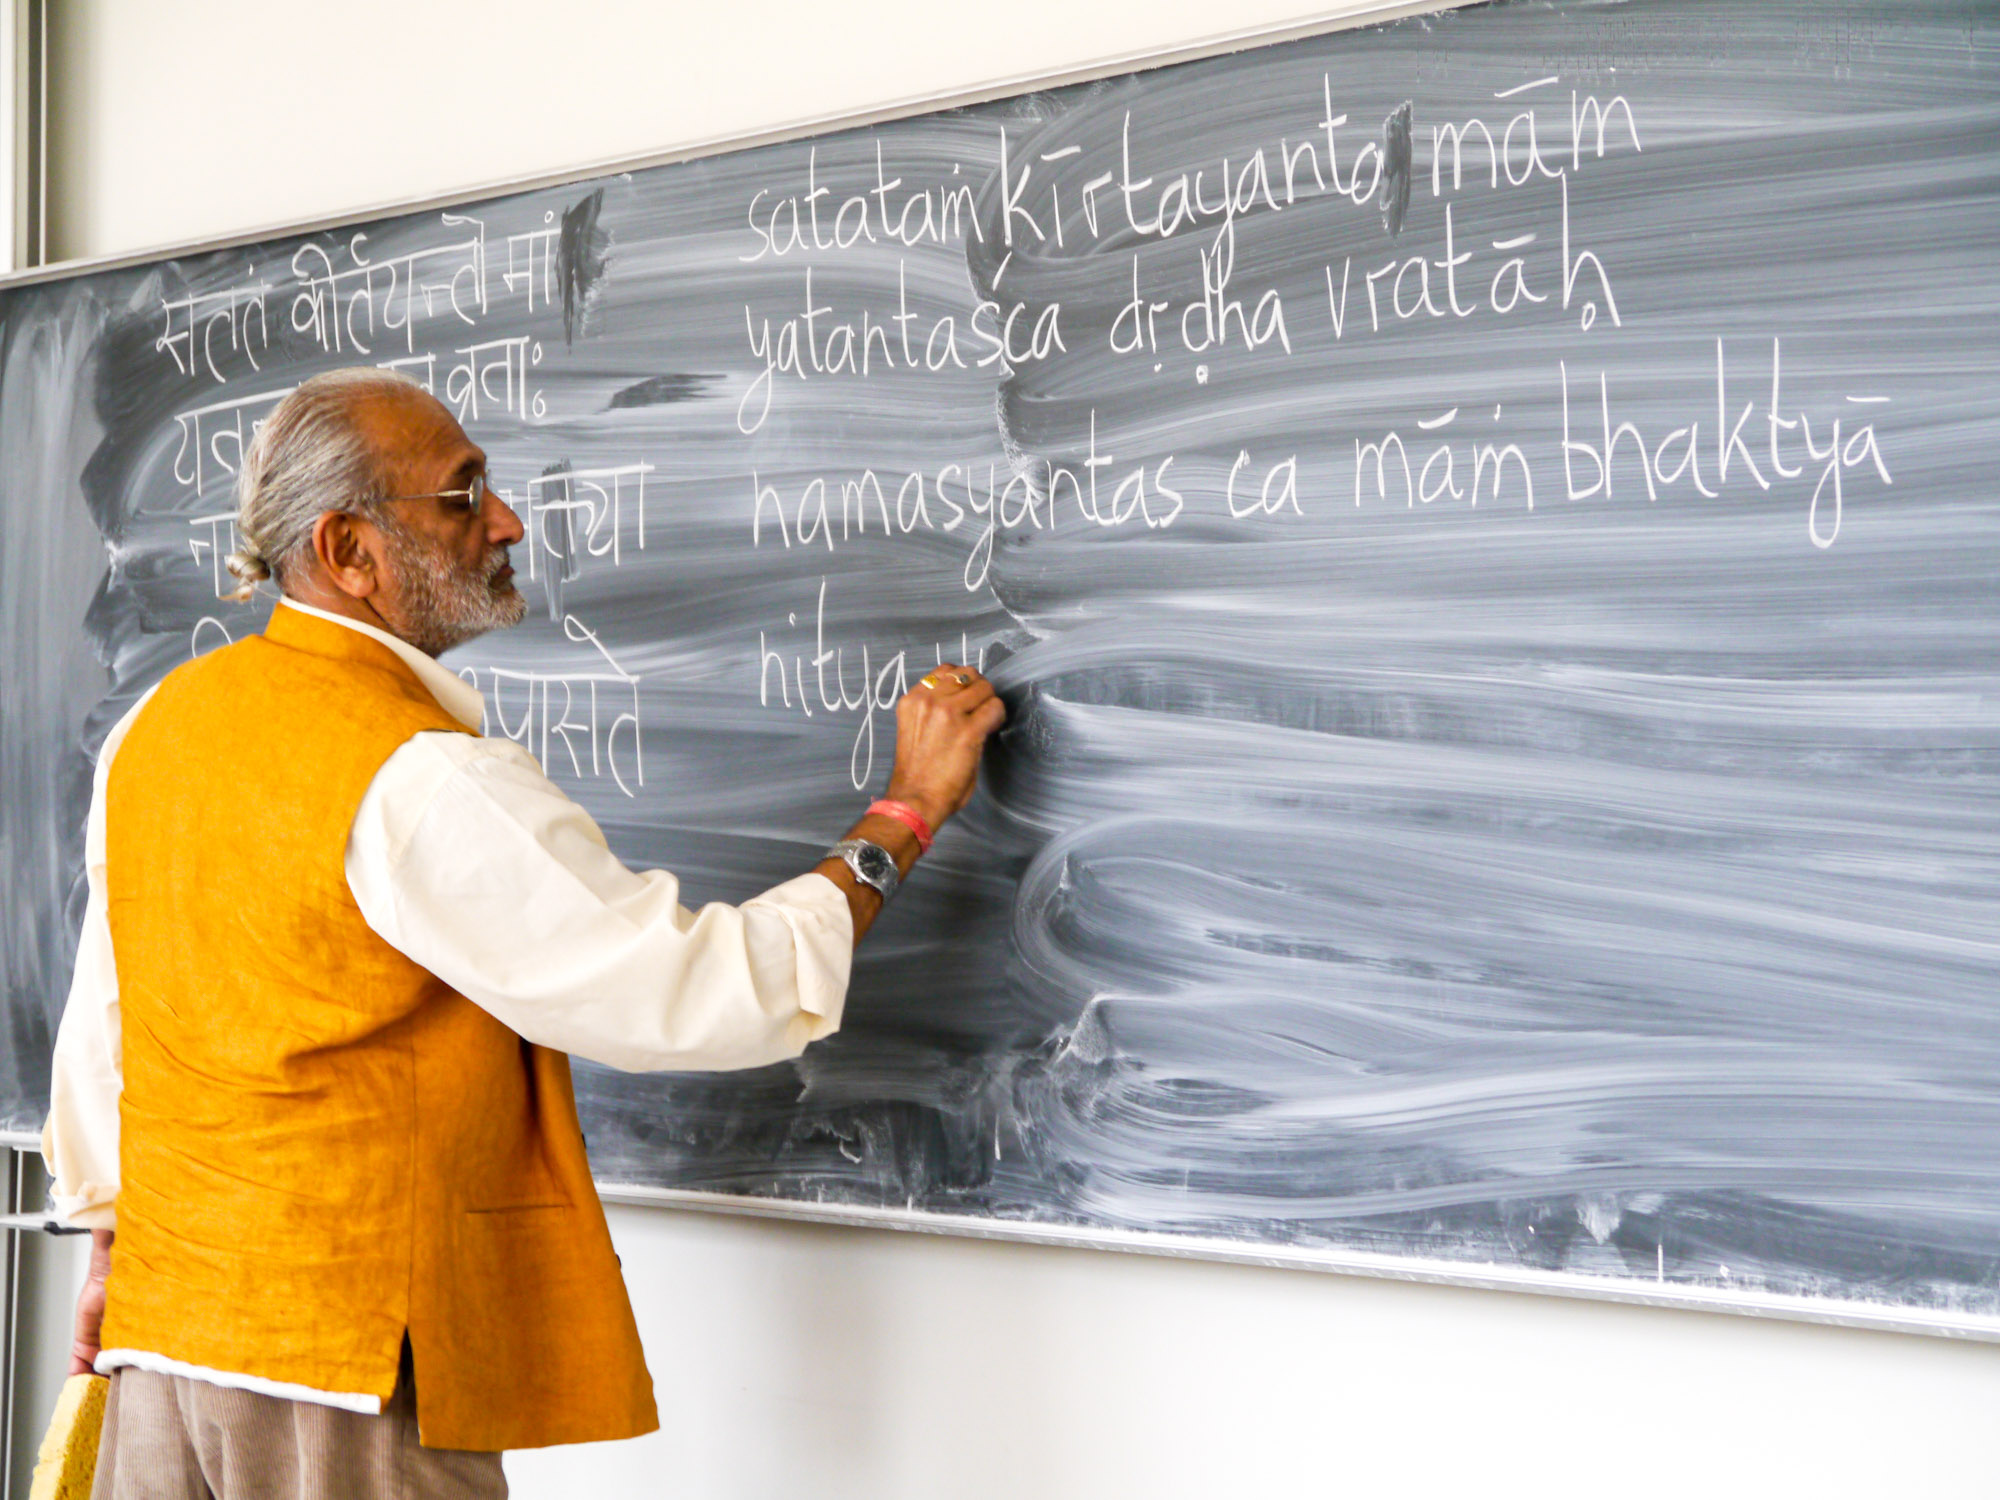 सततं कीर्तयन्तो मां
व्रताः
पासते
satataṁ kīrtayanto mām
yatantaśca dṛḍha vratāḥ
namasyantas ca māṁ bhaktyā
nitya